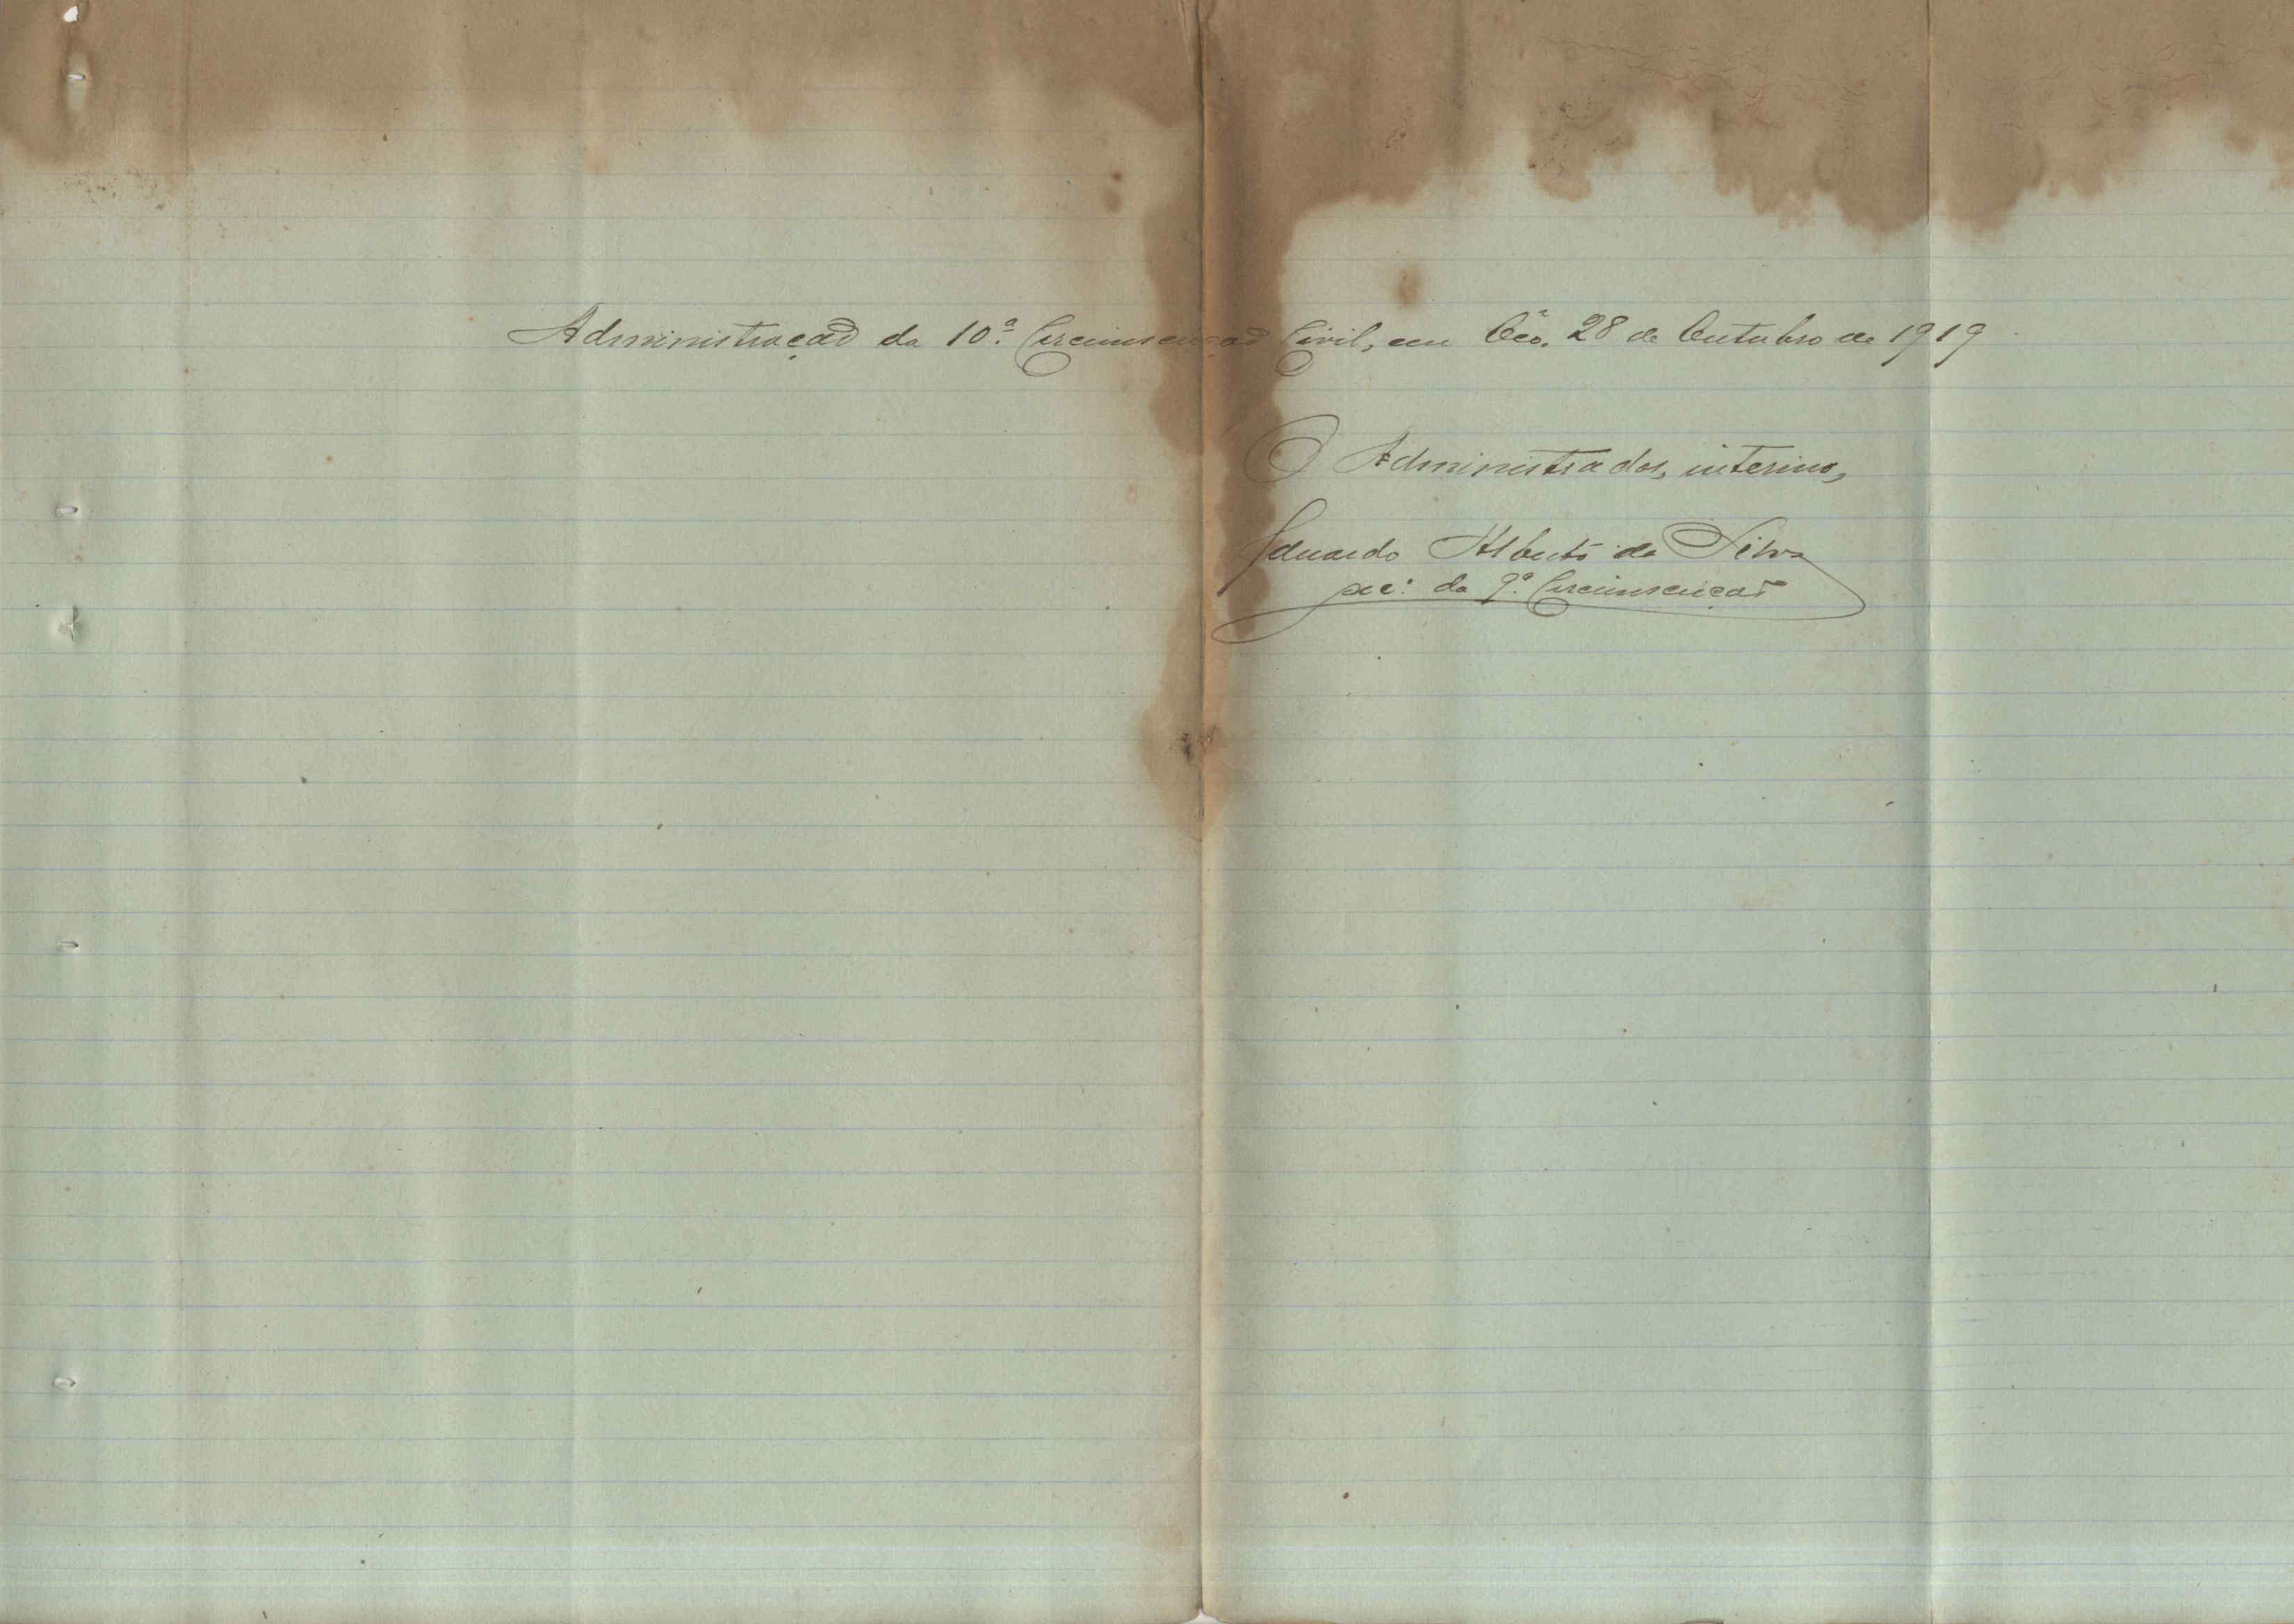 Administração da 10.ª Circunscrição Civil, em Oéo. 28 de Outubro de 1919
O Administrador, interino,
Eduardo Alberto da Silva
sec: da 9.ª Circunscrição